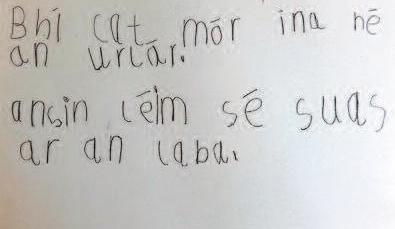 Bhí cat mór ina hé
an urlár.
ansin léim sé suas
ar an laba.